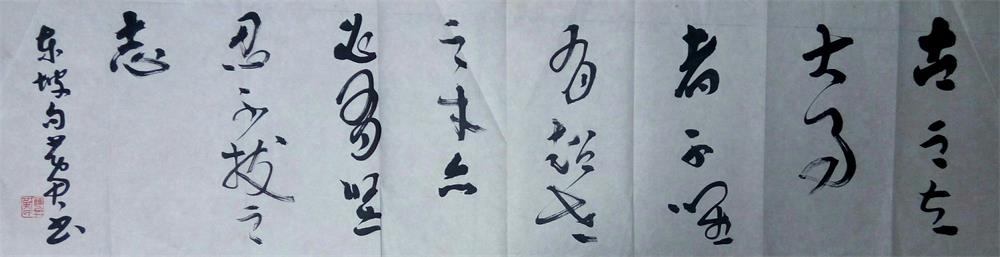 古之立
大事
者不唯
有超世
之才亦
必有坚
忍不拔之
志
东坡句书